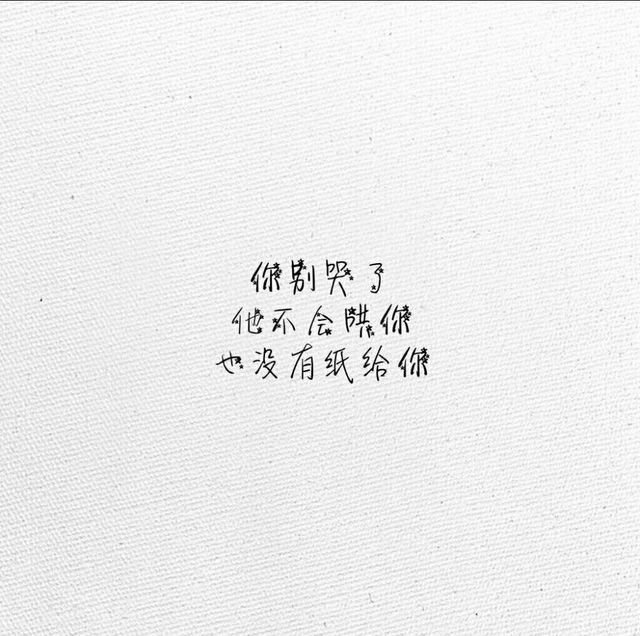 你别哭了
他不会哄你
也没有纸给你